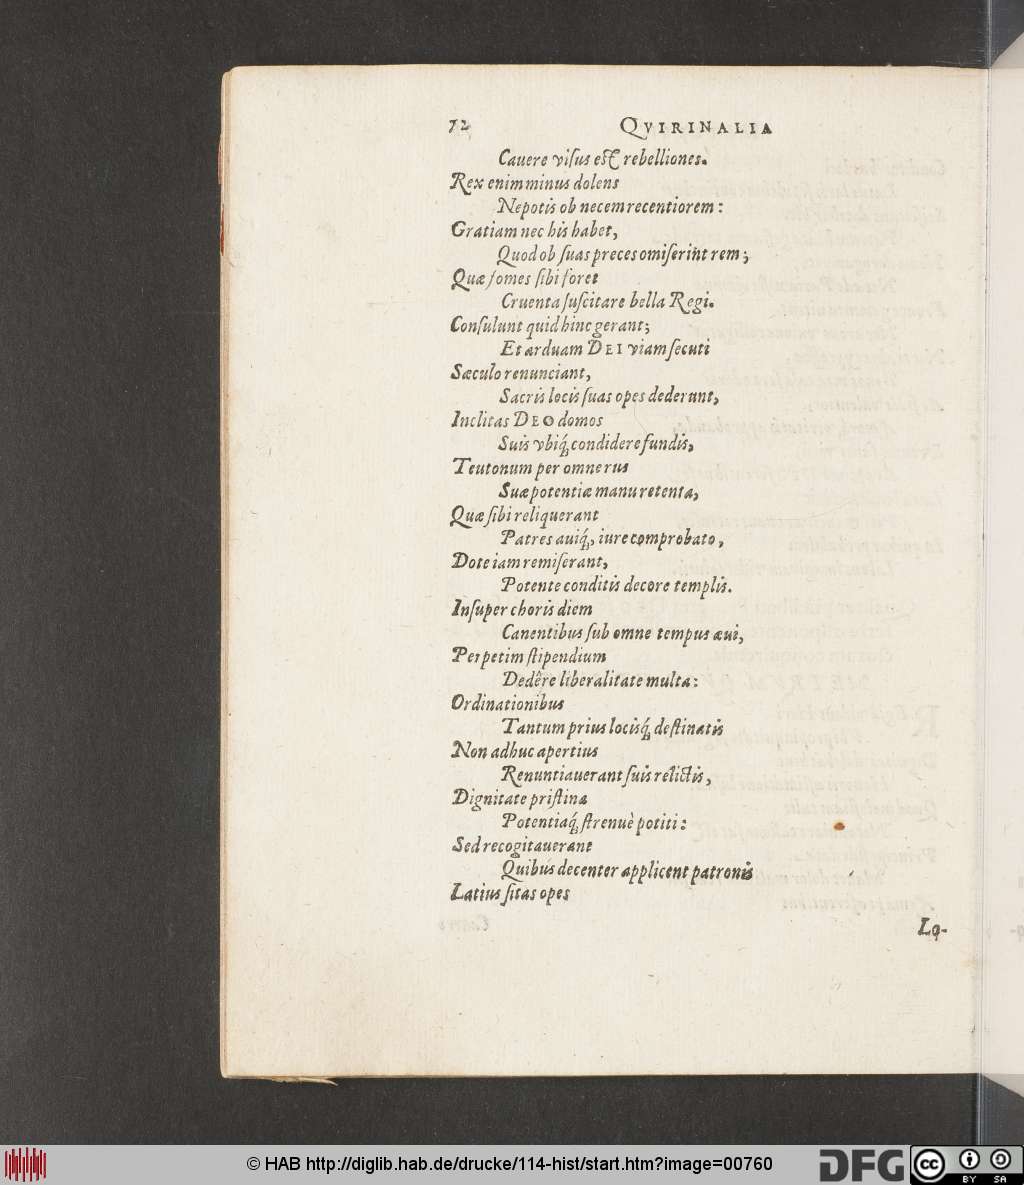 72 QVIRINALIA
Cauere viſus eſt rebelliones.
Rex enim minus dolens
Nepotis ob necem recentiorem:
Gratiam nec his habet,
Quod ob ſuas preces omiſerint rem;
Quæ fomes ſibi foret
Cruenta ſuſcitare bella Regi.
Conſulunt quid hinc gerant;
Et arduam DEI viam ſecuti
Sæculo renunciant,
Sacris locis ſuas opes dederunt,
Inclitas DEO domos
Suis vbiq́; condidere fundis,
Teutonum per omne rus
Suæ potentiæ manu retenta,
Quæ ſibi reliquerant
Patres auiq́;, iure comprobato,
Dote iam remiſerant,
Potente conditis decore templis.
Inſuper choris diem
Canentibus ſub omne tempus æui,
Perpetim ſtipendium
Dedêre liberalitate multa:
Ordinationibus
Tantum prius locisq́; deſtinatis
Non adhuc apertius
Renuntiauerant ſuis relictis,
Dignitate priſtina
Potentiaq́; ſtrenuè potiti:
Sed recogitauerant
Quibus decenter applicent patronis
Latius ſitas opes
La-
© HAB http://diglib.hab.de/drucke/114-hist/start.htm?image=00760
DFG
cc BY SA